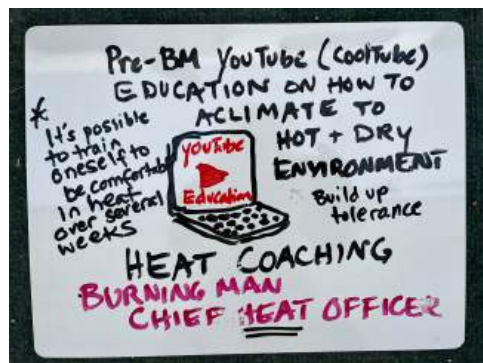 Pre-BM YouTube (CoolTube)
EDUCATION ON HOW TO
ACLIMATE TO
HOT + DRY
ENVIRONMENT
Build up
tolerance
* It's possible
to train
oneself to
be comfortable
in heat
over several
weeks
YouTube
Education
HEAT COACHING
BURNING MAN
CHIEF HEAT OFFICER